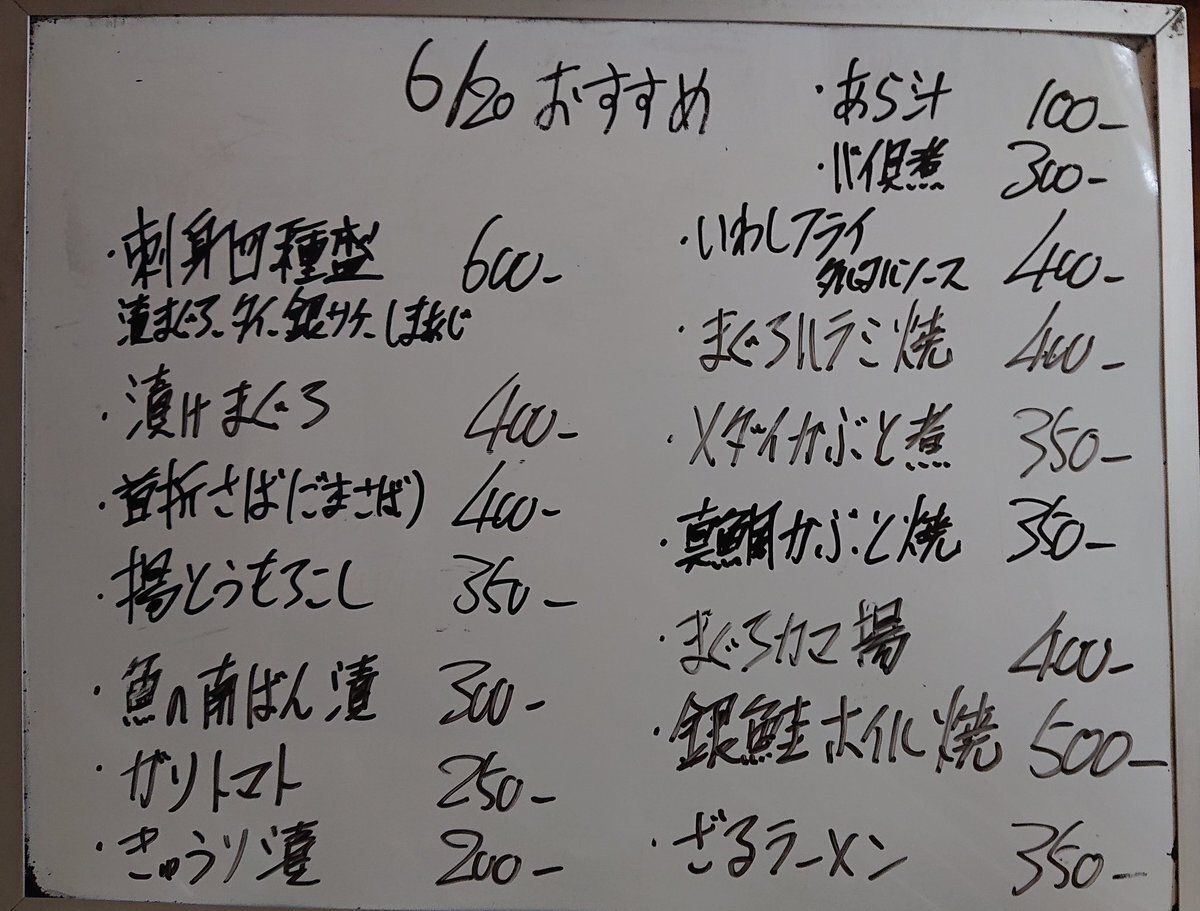 6/20 おすすめ
・刺身四種盛 600-
漬まぐろ、タイ、銀サケ、しまあじ
・漬けまぐろ 400-
・首折さば(ごまさば) 400-
・揚とうもろこし 350-
・魚の南ばん漬 300-
・ガリトマト 250-
・きゅうり漬 200-
・あら汁 100-
・バイ貝煮 300-
・いわしフライ
タルタルソース 400-
・まぐろハラミ焼 400-
・メダイかぶと煮 350-
・真鯛かぶと焼 350-
・まぐろカマ揚 400-
・銀鮭ホイル焼 500-
・ざるラーメン 350-